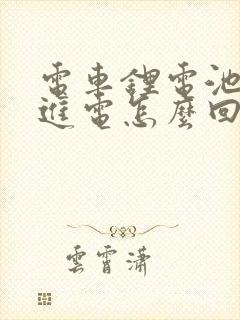 電車鋰電池
進電怎麼回
雲霄瀟